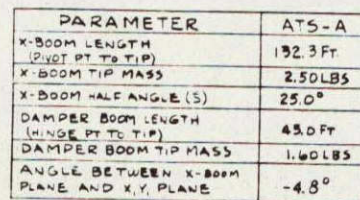 PARAMETER ATS-A
X-BOOM LENGTH
(PIVOT PT TO TIP) 132.3 FT
X-BOOM TIP MASS 2.50 LBS
X-BOOM HALF ANGLE (S) 25.0°
DAMPER BOOM LENGTH
(HINGE PT TO TIP) 45.0 FT
DAMPER BOOM TIP MASS 1.60 LBS
ANGLE BETWEEN X-BOOM
PLANE AND X,Y, PLANE -4.8°